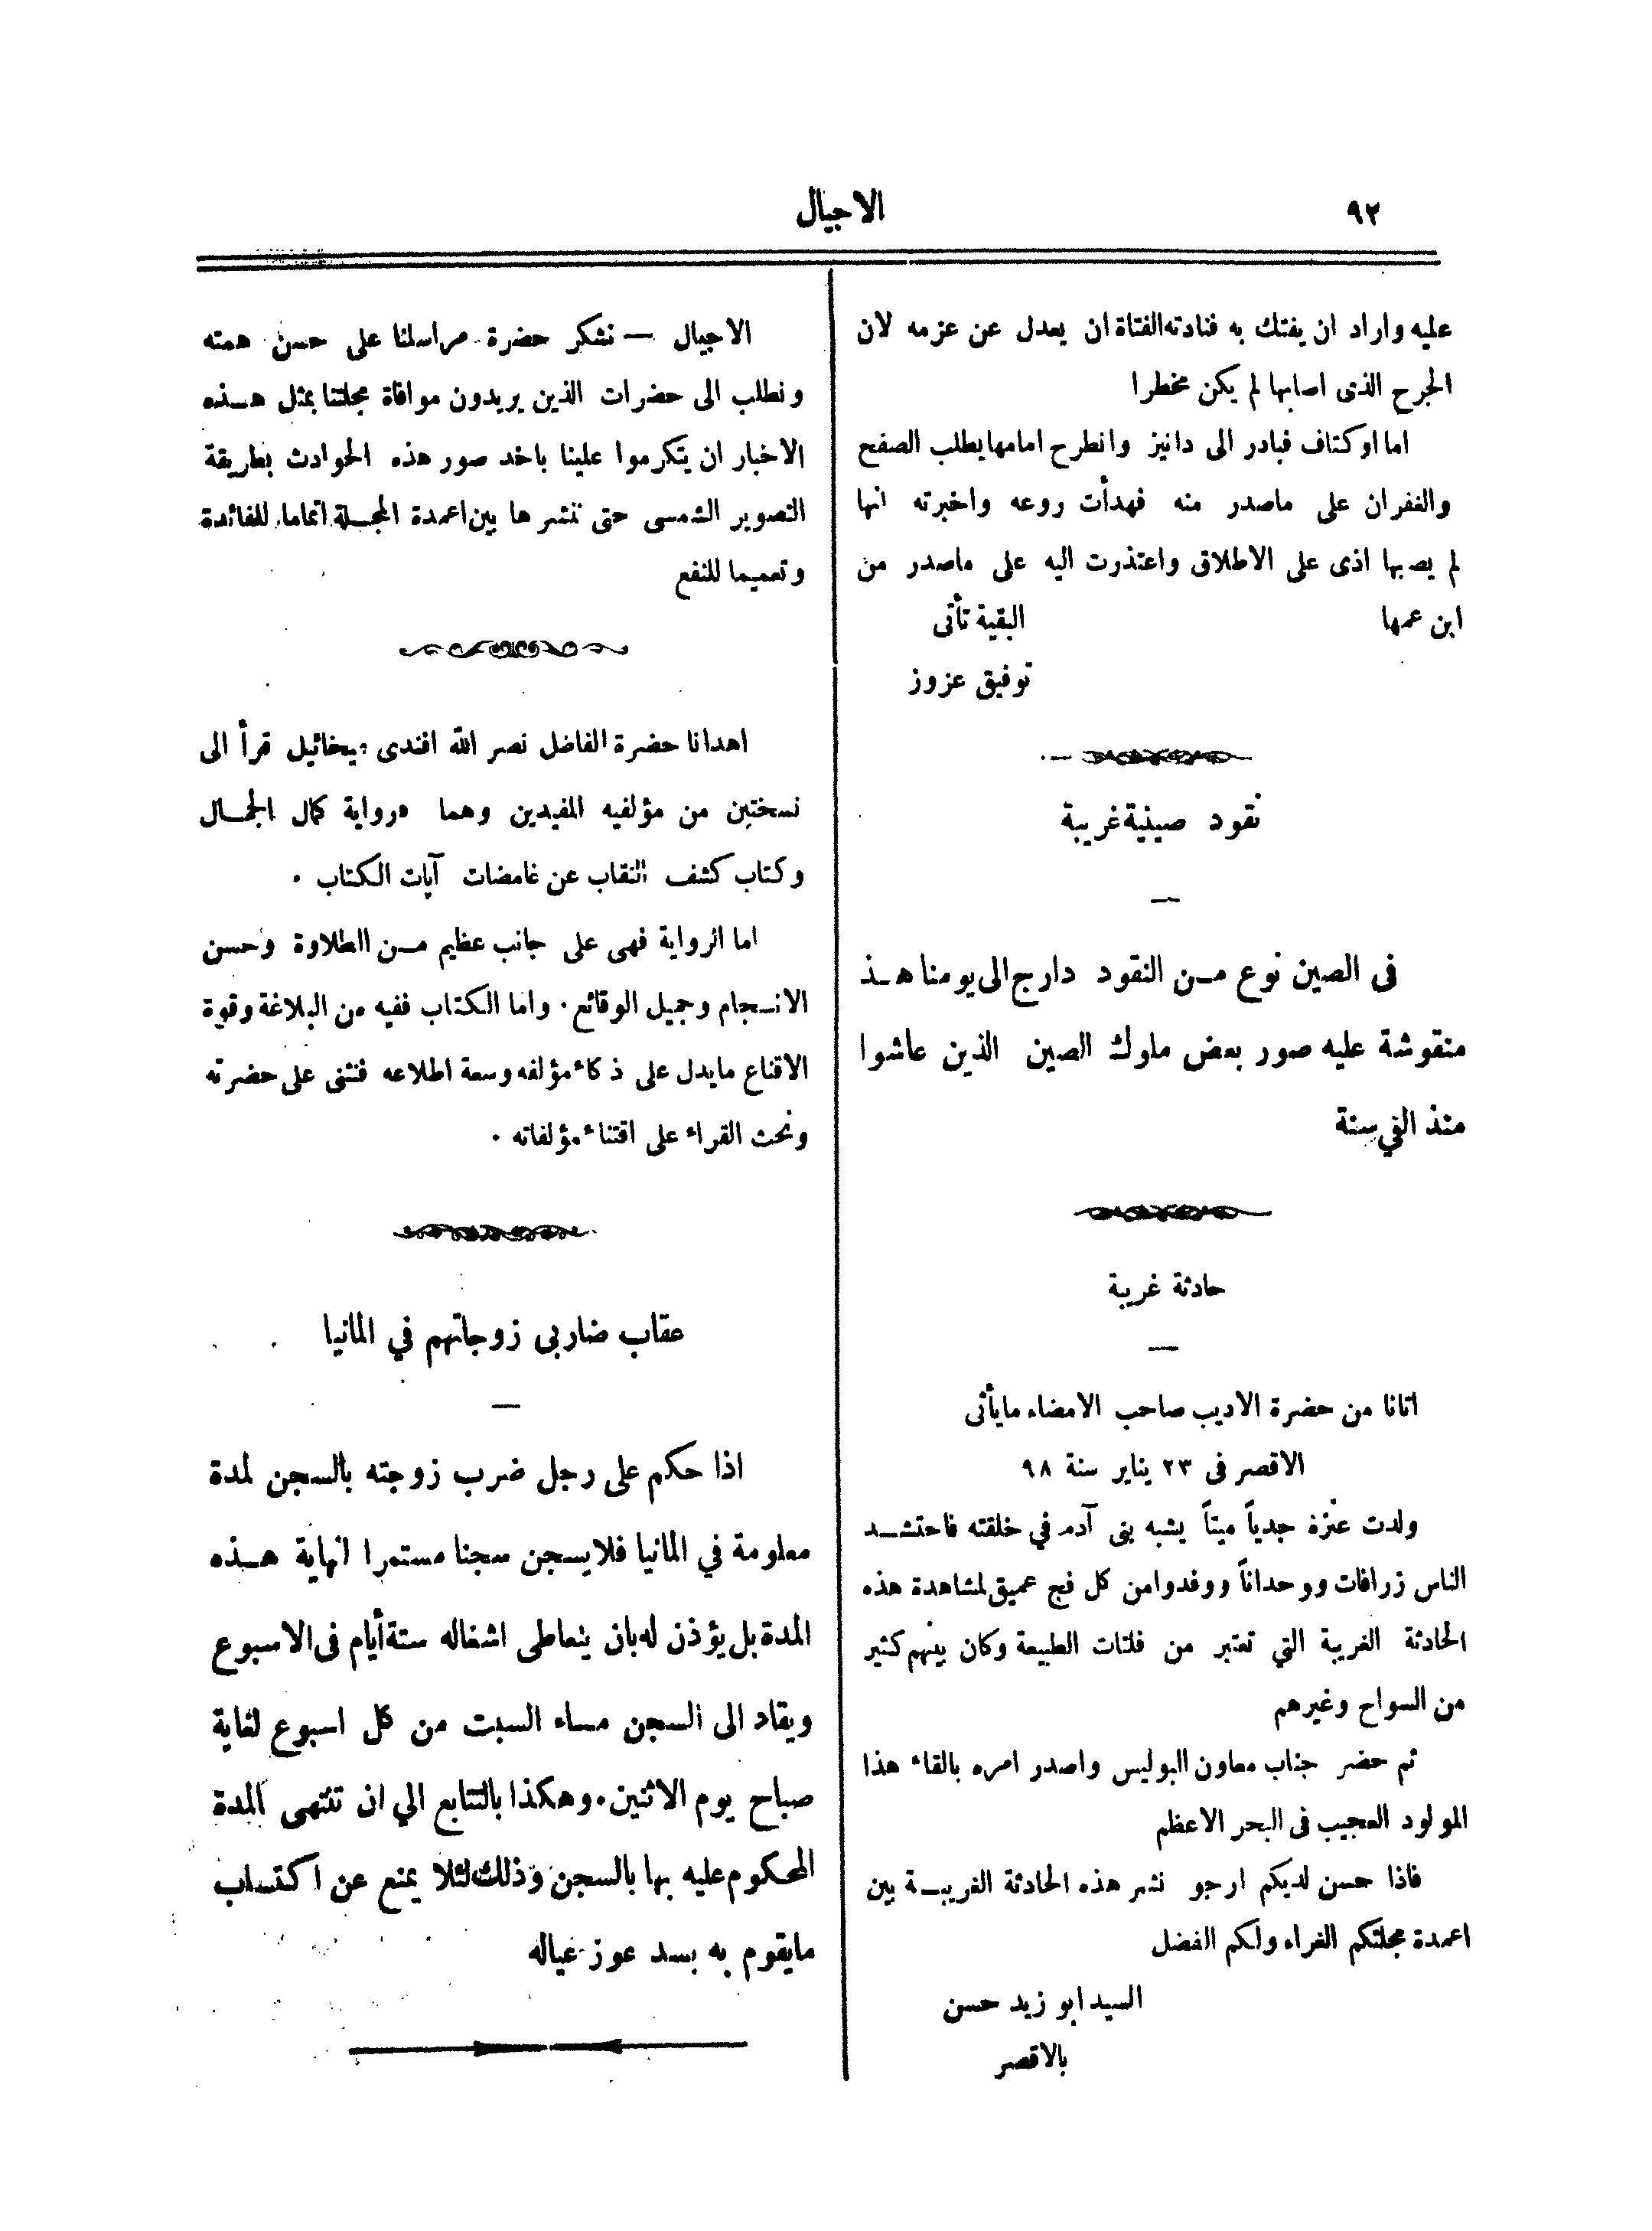 ٩٢
الاجيال
عليه واراد ان يفتك به فنادته الفتاة ان يعدل عن عزمه لان
الجرح الذى اصابها لم يكن مخطرا
اما اوكتاف فبادر الى دانيز وانطرح امامها يطلب الصفح
والغفران على ماصدر منه فهدأت روعه واخبرته انها
لم يصبها اذى على الاطلاق واعتذرت اليه على ماصدر من
ابن عمها البقية تأتى
توفيق عزوز
نقود صينية غريبة
—
فى الصين نوع مـن النقود دارج الى يومنا هـذ
منقوشة عليه صور بعض ملوك الصين الذين عاشوا
منذ الفي سنة
حادثة غريبة
—
اتانا من حضرة الاديب صاحب الامضاء مايأتى
الاقصر فى ٢٣ يناير سنة ٩٨
ولدت عنزة جدياً ميتاً يشبه بنى آدم في خلقته فاحتشـد
الناس زرافات ووحداناً ووفدوا من كل فج عميق لمشاهدة هذه
الحادثة الغريبة التي تعتبر من فلتات الطبيعة وكان بينهم كثير
من السواح وغيرهم
ثم حضر جناب معاون البوليس واصدر امره بالقاء هذا
المولود العجيب فى البحر الاعظم
فاذا حسن لديكم ارجو نشر هذه الحادثة الغريبـة بين
اعمدة مجلتكم الغراء ولكم الفضل
السيد ابو زيد حسن
بالاقصر
الاجيال — نشكر حضرة مراسلنا على حسن همته
ونطلب الى حضرات الذين يريدون موافاة مجلتنا بمثل هـذه
الاخبار ان يتكرموا علينا باخد صور هذه الحوادث بطريقة
التصوير الشمسى حتى ننشرها بين اعمدة المجـلة اتماما للفائدة
وتعميما للنفع
اهدانا حضرة الفاضل نصر الله افندى ميخائيل قرأ الى
نسختين من مؤلفيه المفيدين وهما «رواية كمال الجمـال
وكتاب كشف النقاب عن غامضات آيات الكتاب .
اما الرواية فهى على جانب عظيم مـن الطلاوة وحسن
الانسجام وجميل الوقائع . واما الكتاب ففيه من البلاغة وقوة
الاقناع مايدل على ذكاء مؤلفه وسعة اطلاعه فنثنى على حضرته
ونحث القراء على اقتناء مؤلفاته .
عقاب ضاربى زوجاتهم في المانيا
—
اذا حكم على رجل ضرب زوجته بالسجن لمدة
معلومة في المانيا فلا يسجن سجنا مستمرا انهاية هـذه
المدة بل يؤذن له بان يتعاطى اشغاله ستة أيام فى الاسبوع
ويقاد الى السجن مساء السبت من كل اسبوع لغاية
صباح يوم الاثنين . وهكذا بالتتابع الي ان تنتهى المدة
المحكوم عليه بها بالسجن وذلك لئلا يمنع عن اكتساب
مايقوم به بسد عوز عياله